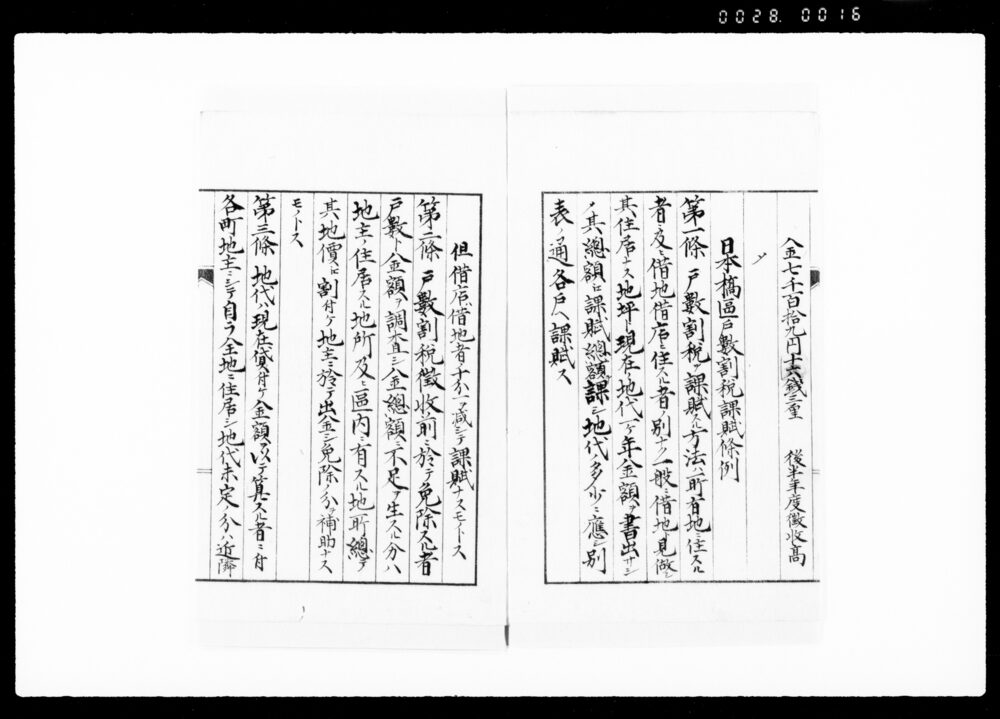 0028.0016
金七千百拾九円十六錢三重 後半年度徴收高
〆
日本橋區戸數割税課賦條例
第一條 戸數割税ヲ課賦スル方法ハ所有地ニ住スル
者及ヒ借地借店ニ住スル者ノ別ナク一般ニ借地ト見做シ
其住居ナス地坪ト現在ノ地代一ケ年金額ヲ書出サシ
メ其總額ニ課賦總額ヲ課シ地代ノ多少ニ應シ別
表ノ通各戸ヘ課賦ス
但借店ハ借地者ノ十分一ヲ減シテ課賦ナスモノトス
第二條 戸數割税徴收前ニ於テ免除スル者
戸數ト金額ヲ調査シ金總額ニ不足ヲ生スル分ハ
地主ノ住居スル地所及ヒ區内ニ有スル地所總テ
其地價ニ割付ケ地主ニ於テ出金シ免除ノ分ヲ補助ナス
モノトス
第三條 地代ハ現在貸付ケ金額ヲ以テ算スル者ニ付
各町地主ニシテ自ラ全地ニ住居シ地代未定ノ分ハ近隣